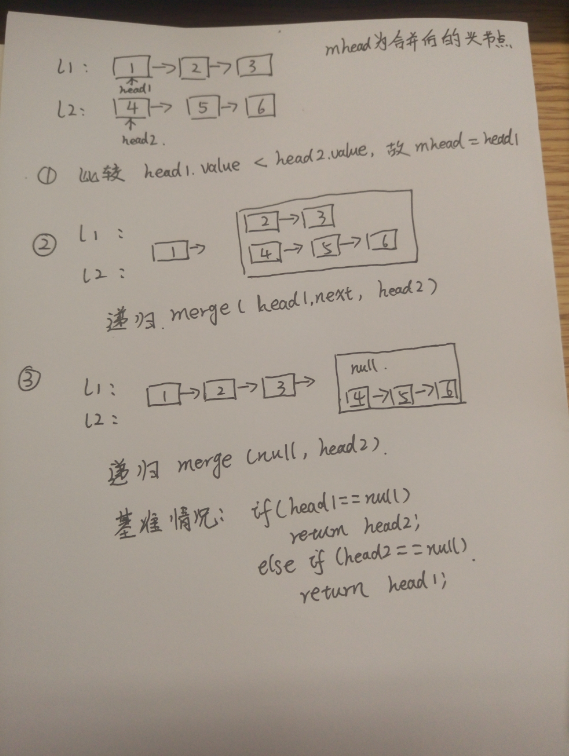 mhead为合并后的头节点
L1: 1 → 2 → 3
head1
L2: 4 → 5 → 6
head2.
① 比较 head1.value < head2.value, 故 mhead = head1
② L1: 2 → 3
1 →
L2: 4 → 5 → 6
递归. merge( head1.next, head2)
③ null.
L1: 1 → 2 → 3 →
4 → 5 → 6
L2:
递归 merge (null, head2).
基准情况: if (head1==null)
return head2;
else if (head2==null).
return head1;